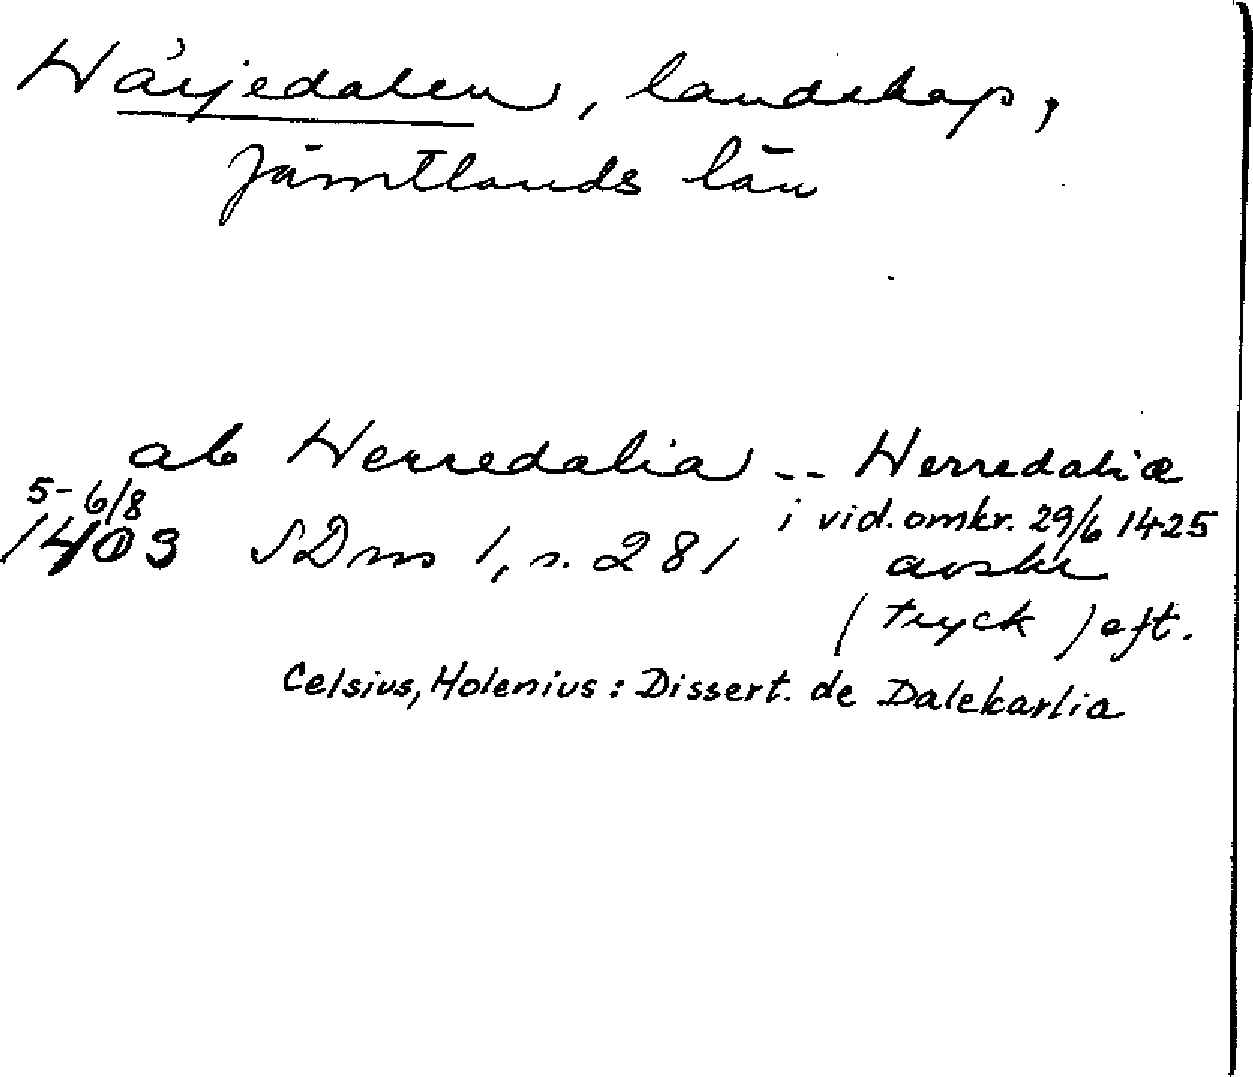 Härjedalen, landskap,
Jämtlands län
ab Herredalia -- Herredaliæ
5-6/8
1403 SDns 1, s. 281
i vid. omkr. 29/6 1425
avskr
(tryck) eft.
Celsius, Holenius: Dissert. de Dalekarlia